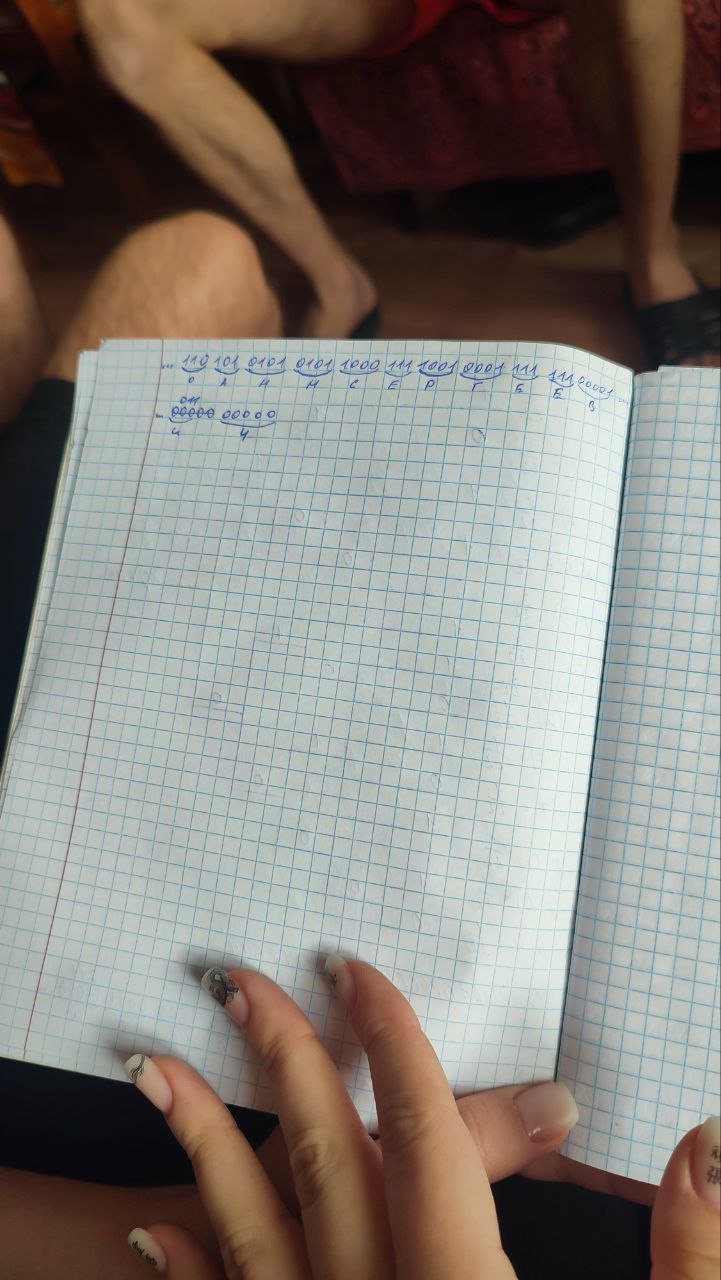 ... 110 101 0101 0101 1000 111 1001 0001 111 111 00001 ...
О А Н Н С Е Р Г Е Е В
011
... 00000 00000
И Ч